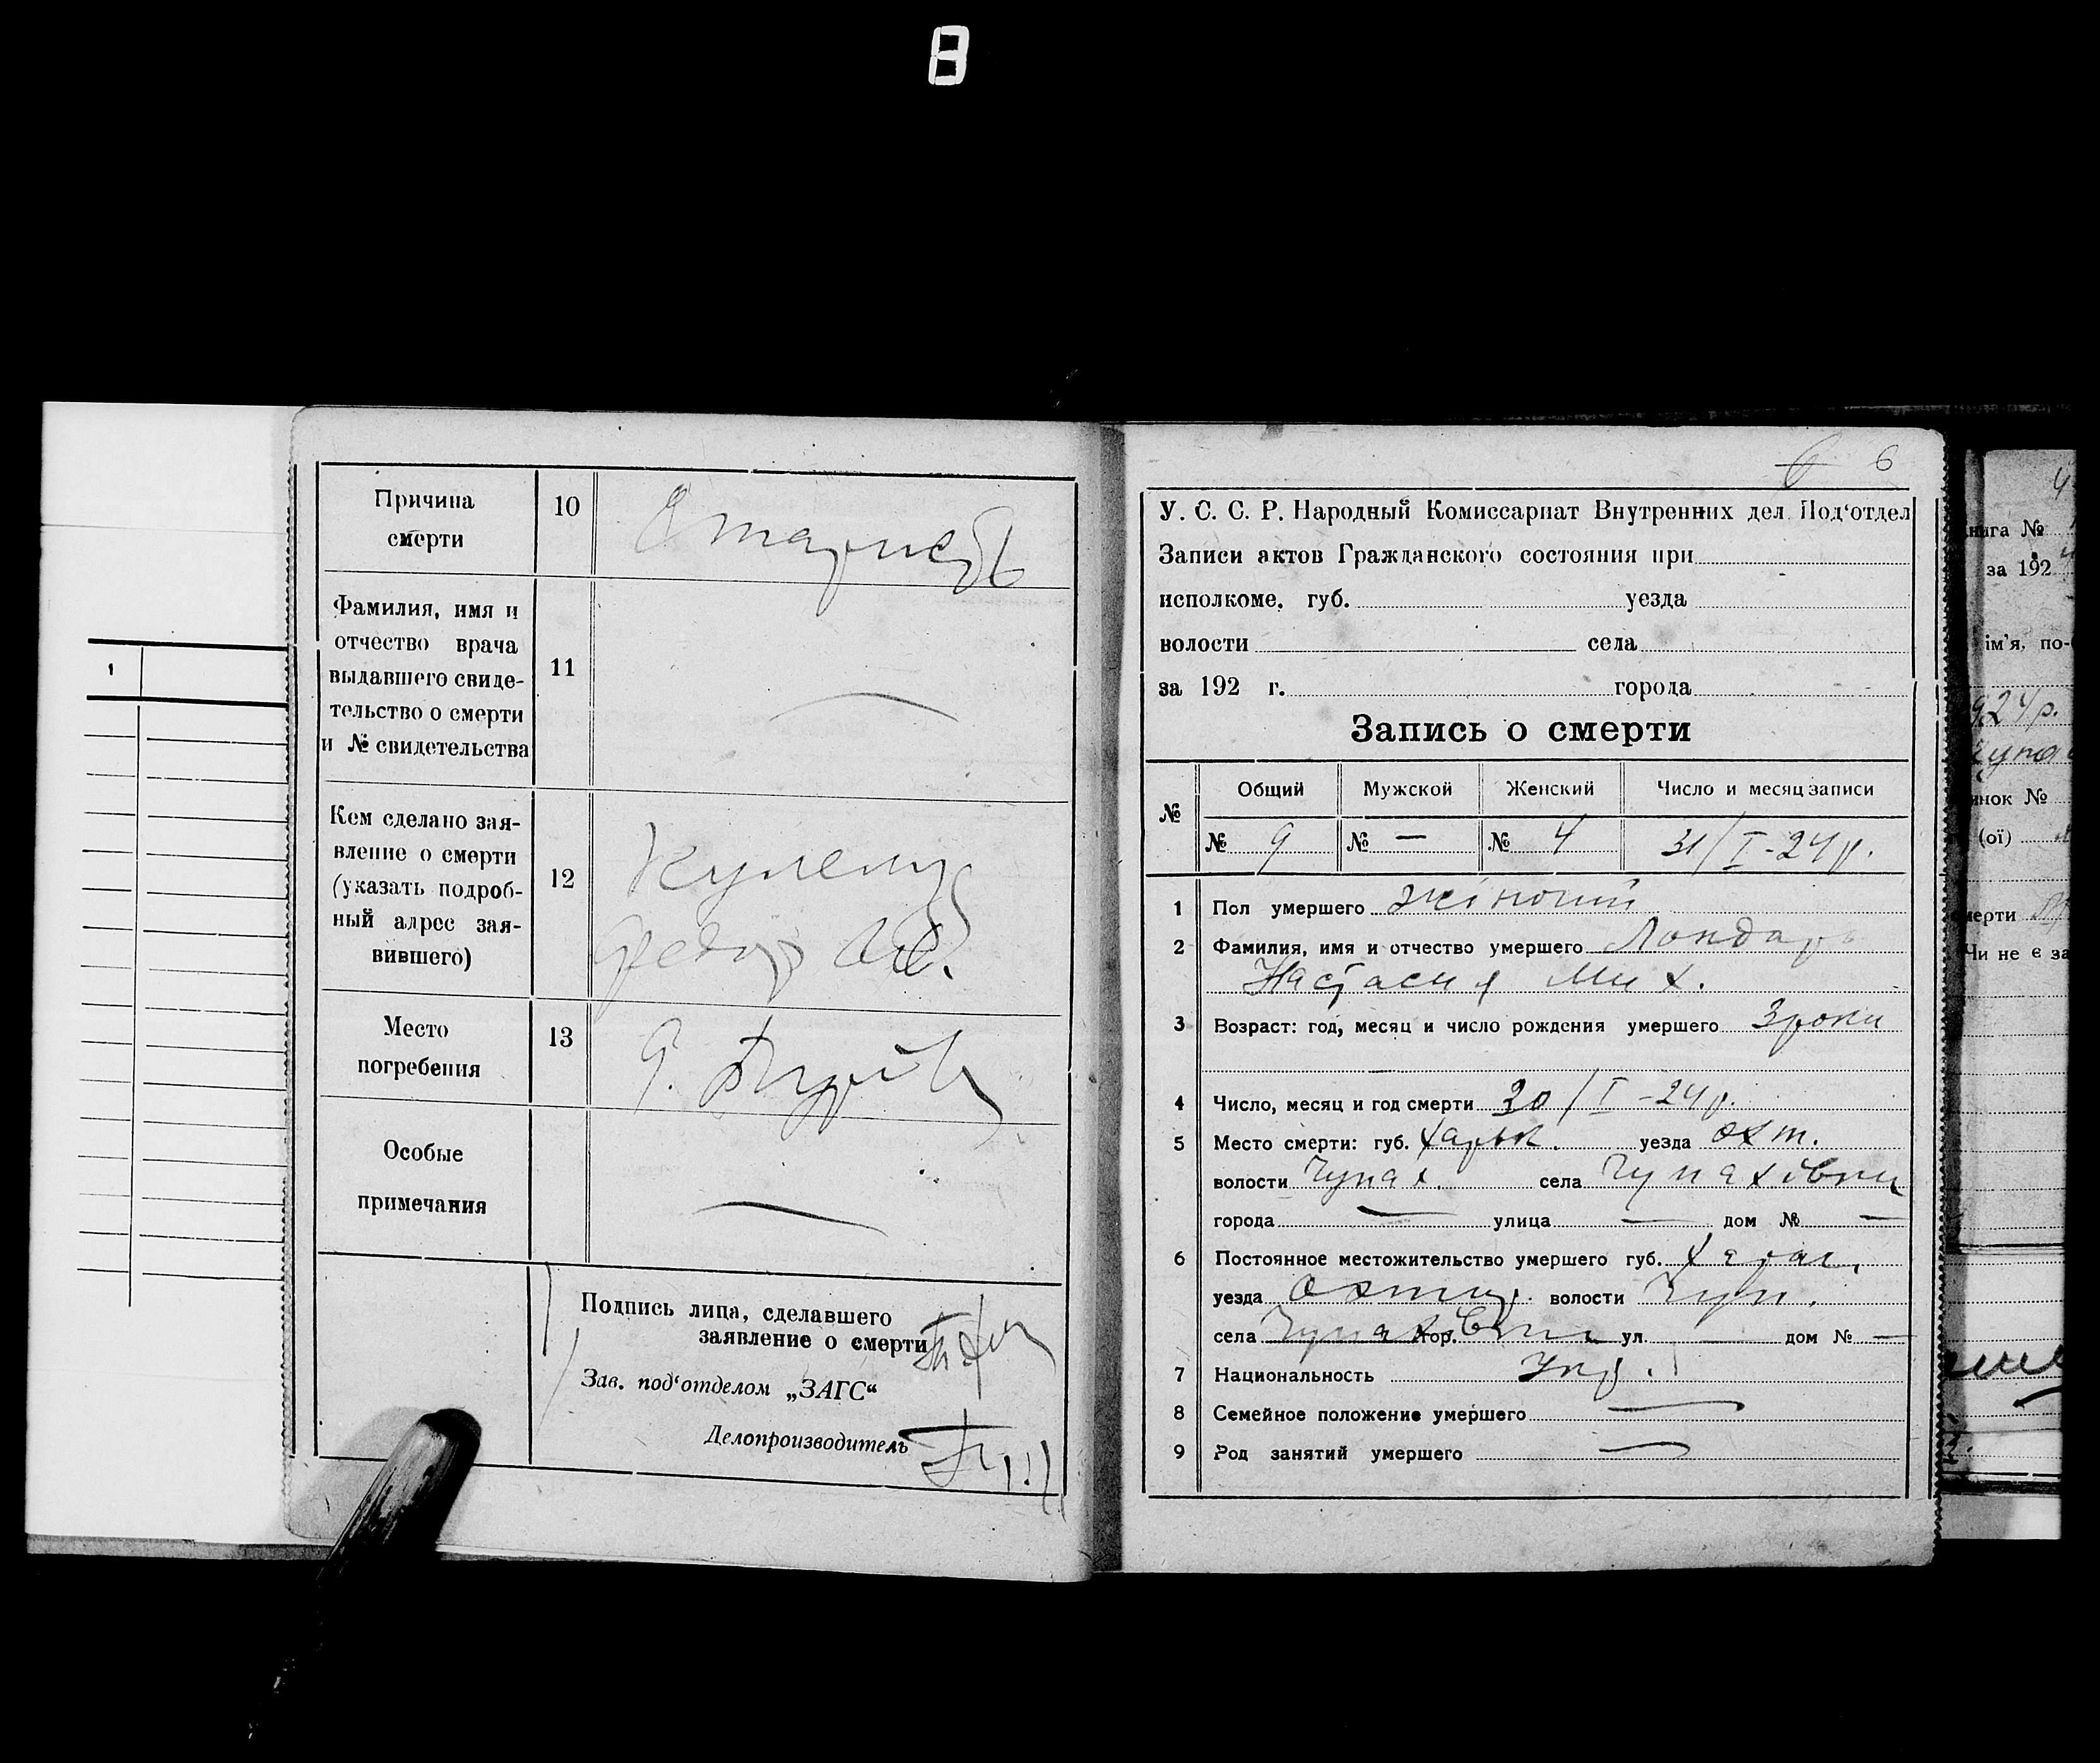 8
1
Причина
смерти
10
Фамилия, имя и
отчество врача
выдавшего свиде-
тельство о смерти
и № свидетельства
11
Кем сделано зая-
вление о смерти
(указать подроб-
ный адрес зая-
вившего)
12
Место
погребения
13
Особые
примечания
Подпись лица, сделавшего
заявление о смерти
Зав. под‘отделом „ЗАГС“
Делопроизводитель
6 6
У. С. С. Р. Народный Комиссариат Внутренних дел Под‘отдел
Записи актов Гражданского состояния при
исполкоме, губ. уезда
волости села
за 192 г. города
Запись о смерти
№ Общий Мужской Женский Число и месяц записи
№ 9 № — № 4 31/I-24 р.
1 Пол умершего жіночий
2 Фамилия, имя и отчество умершего Лондарь
Настасия Мих.
3 Возраст: год, месяц и число рождения умершего 3 роки
4 Число, месяц и год смерти 30/I-24 р.
5 Место смерти: губ. Харьк. уезда Охт.
волости Чупах. села Чупахівки
города — улица — дом № —
6 Постоянное местожительство умершего губ.
уезда Охтир. волости Чуп.
села Чупахівки гор. ул. — дом № —
7 Национальность Укр.
8 Семейное положение умершего —
9 Род занятий умершего —
нига №
за 192
ім’я, по-
924 р.
инок №
(ої)
мерти
Чи не є за